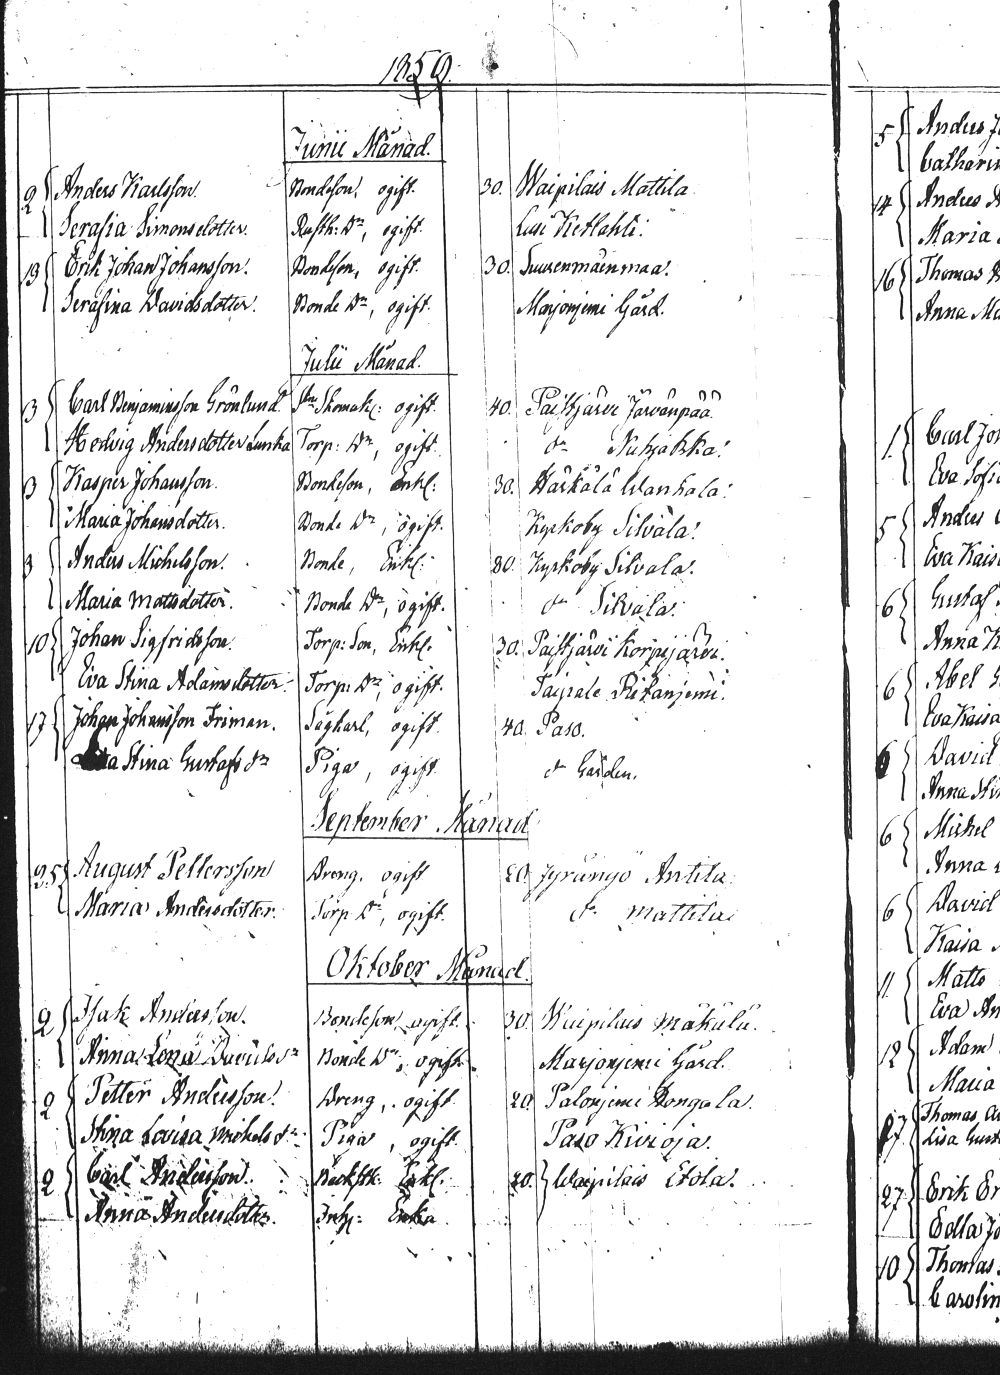 1859.
Junii Månad.
2 Anders Karlsson Bondeson, ogift. 30. Waipilais Mattila
Serafia Simonsdotter. Rusth: Dr, ogift. Lusi Ketlahti.
13 Erik Johan Johansson. Bondeson, ogift. 30. Suurenmäenmaa.
Serafina Davidsdotter. Bonde Dr, ogift. Marjonjemi Gård.
Julii Månad.
3 Carl Benjaminsson Grönlund. ogift. 40. Paistjärvi Järvenpää
Hedvig Andersdotter Lunka Torp: Dr, ogift. do
3 Kasper Johansson. Bondeson, Enkl: 30. Härkälä Wanhala.
Maria Johansdotter. Bonde Dr, ogift. Kyrkoby Silvala.
3 Anders Michelsson. Bonde, Enkl: 30. Kyrkoby Silvala.
Maria Mattsdotter. Bonde Dr, ogift. do Silvala.
10 Johan Sigfridsson. Torp: Son, Enkl. 30. Paistjärvi Korpijärvi.
Eva Stina Adamsdotter. Torp: Dr, ogift. Taipale Pitkänjemi.
17 Johan Johansson Friman. Sågkarl, ogift. 40. Paso.
Stina Gustafs dr Piga, ogift. do Gården.
September Månad
25 August Pettersson Dreng, ogift 20. Jyrängö Anttila.
Maria Andersdotter. Torp Dr, ogift. do Mattila
Oktober Månad.
2 Isak Andersson. Bondeson, ogift. 30. Waipilais Mäkälä.
Anna Lena Davids dr Bonde Dr, ogift. Marjonjemi Gård.
2 Petter Andersson. Dreng, ogift. 20. Palonjemi Hongola.
Stina Lovisa Mickels dr Piga, ogift. Paso Kivioja.
2 Carl Andersson. Backstk: Enkl. 20. Waipilais Etola.
Anna Andersdotter. Enka
5 Anders
Catharin
14 Anders
Maria
16 Thomas
Anna Ma
1. Carl Joh
Eva Sofi
5 Anders
Eva Kaisa
6 Gustaf
Anna K
6 Abel
Eva Kaisa
6 David
Anna Sti
6 Mickel
Anna
6 David
Kaisa
11 Matts
Eva An
12 Adam
Maria
17 Thomas
Lisa Gust
27 Erik Er
Edla Jo
10 Thomas
Carolin